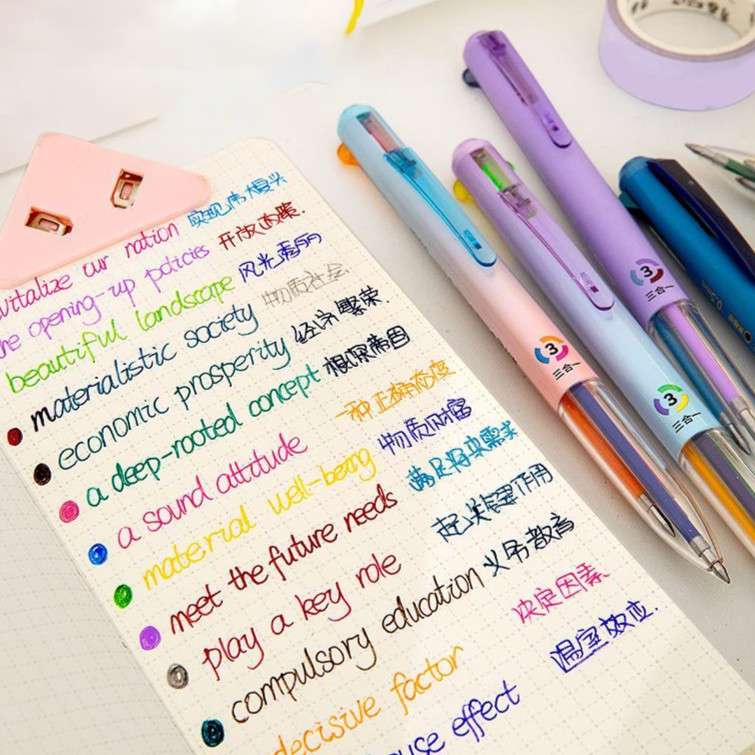 vitalize our nation 实现伟大
the opening-up policies 开放政策.
beautiful landscape 风光秀丽
materialistic society 物质社会.
economic prosperity 经济繁荣.
a deep-rooted concept 根深蒂固
a sound attitude 一种正确态度
material well-being 物质财富
meet the future needs 满足将来需求
play a key role 起关键作用
compulsory education 义务教育
decisive factor 决定因素.
use effect 温室效应.
3
三合一
3
三合一
3
三合一